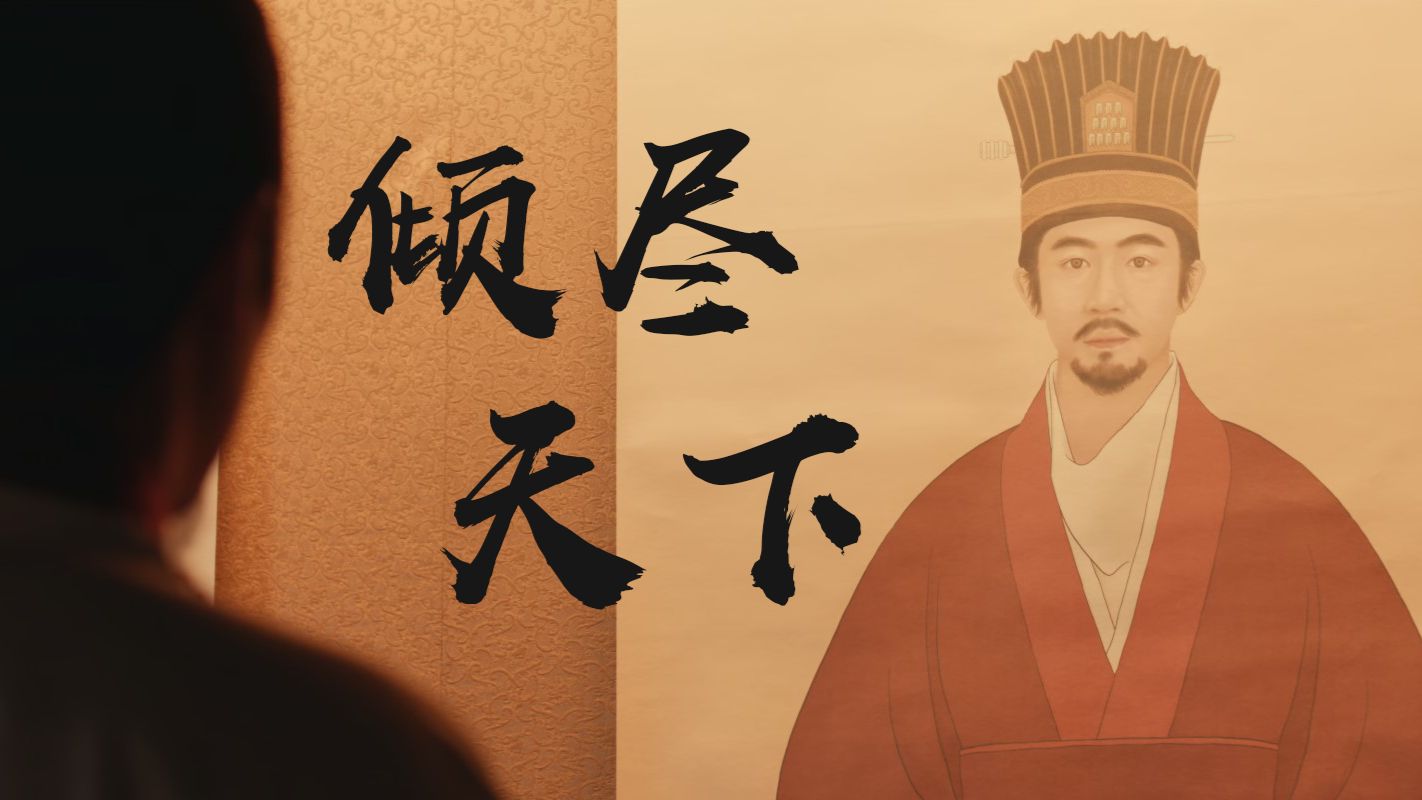 倾尽
天下